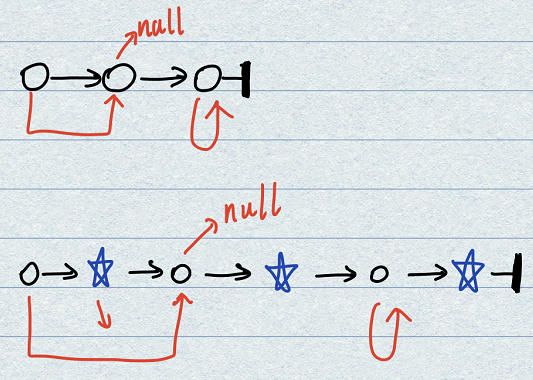 null
null